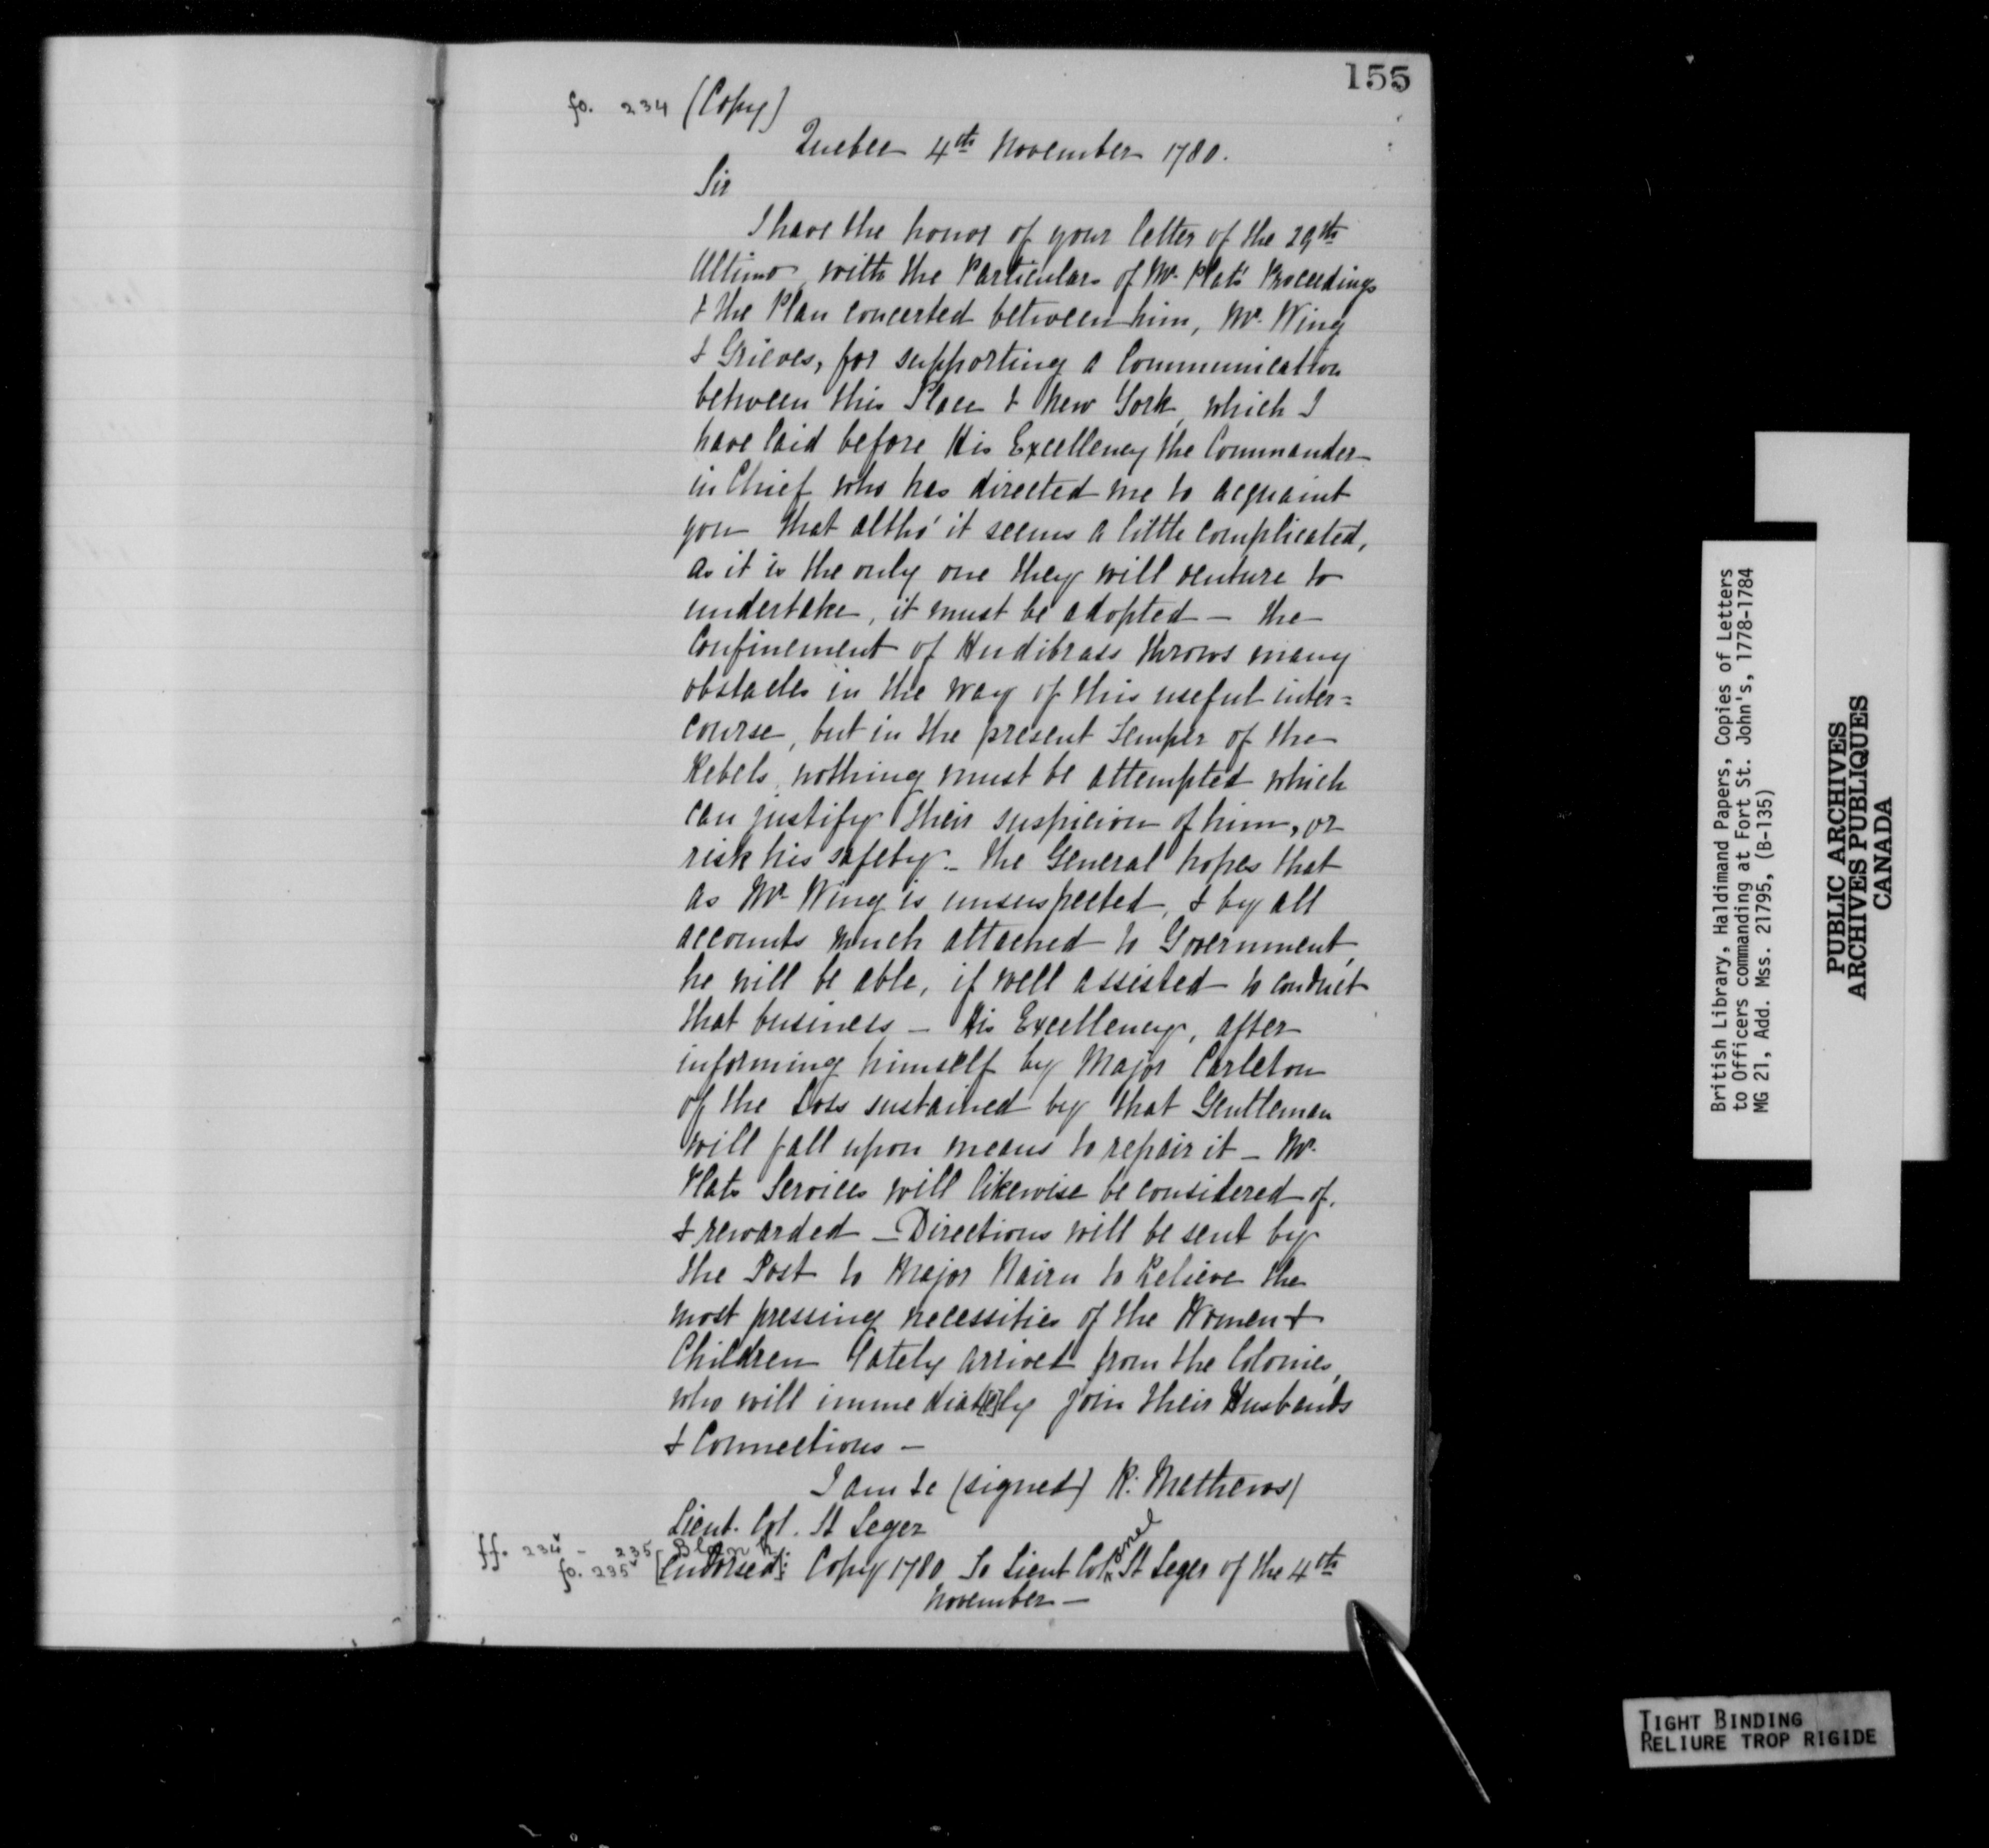 155
fo. 234 (Copy)
Quebec 4th November 1780.
Sir
I have the honor of your letter of the 29th
Ultimo, with the Particulars of Mr. Plat's Proceedings
& the Plan concerted between him, Mr. Wing
& Grieves, for supporting a Communication
between this Place & New York, which I
have laid before His Excellency the Commander
in Chief who has directed me to acquaint
you that altho' it seems a little complicated,
as it is the only one they will venture to
undertake, it must be adopted — the
Confinement of Hudibrass throws many
obstacles in the way of this useful inter=
course, but in the present Temper of the
Rebels, nothing must be attempted which
can justify their suspicion of him, or
risk his safety — the General hopes that
as Mr. Wing is unsuspected, & by all
accounts much attached to Government,
he will be able, if well assisted to conduct
that business — His Excellency, after
informing himself by Major Carleton
of the Loss sustained by that Gentleman
will fall upon means to repair it — Mr.
Plats Services will likewise be considered of.
& rewarded — Directions will be sent by
the Post to Major Nairn to Relieve the
most pressing necessities of the Women &
Children lately arrived from the Colonies,
who will immediat[e]ly join their Husbands
& Connections —
I am &c (signed) R. Mathews)
Lieut. Col. St Leger
ff. 234v - 235 Blank
fo. 235v [Endorsed]: Copy 1780 To Lieut Colonel St Leger of the 4th
November —
British Library, Haldimand Papers, Copies of Letters
to Officers commanding at Fort St. John's, 1778-1784
MG 21, Add. Mss. 21795, (B-135)
PUBLIC ARCHIVES
ARCHIVES PUBLIQUES
CANADA
TIGHT BINDING
RELIURE TROP RIGIDE